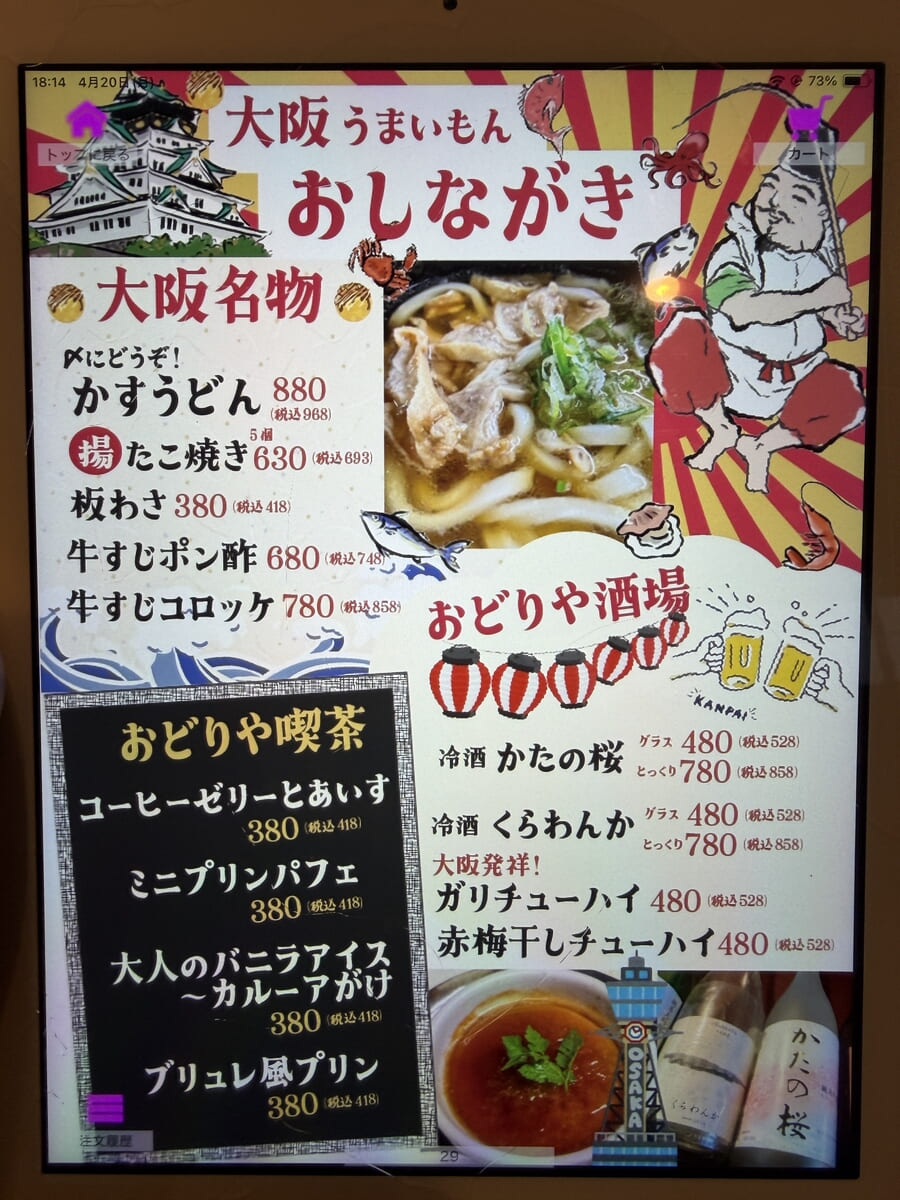 18:14 4月20日(日)
73%
トップに戻る
カート
大阪 うまいもん
おしながき
大阪名物
〆にどうぞ!
かすうどん 880 (税込968)
揚 たこ焼き 5個 630 (税込693)
板わさ 380 (税込418)
牛すじポン酢 680 (税込748)
牛すじコロッケ 780 (税込858)
おどりや酒場
KANPAI
冷酒 かたの桜 グラス 480 (税込528)
とっくり 780 (税込858)
冷酒 くらわんか グラス 480 (税込528)
とっくり 780 (税込858)
大阪発祥!
ガリチューハイ 480 (税込528)
赤梅干しチューハイ 480 (税込528)
おどりや喫茶
コーヒーゼリーとあいす
380 (税込418)
ミニプリンパフェ
380 (税込418)
大人のバニラアイス
~カルーアがけ
380 (税込418)
ブリュレ風プリン
380 (税込418)
OSAKA
くらわんか
かたの桜
注文履歴
29